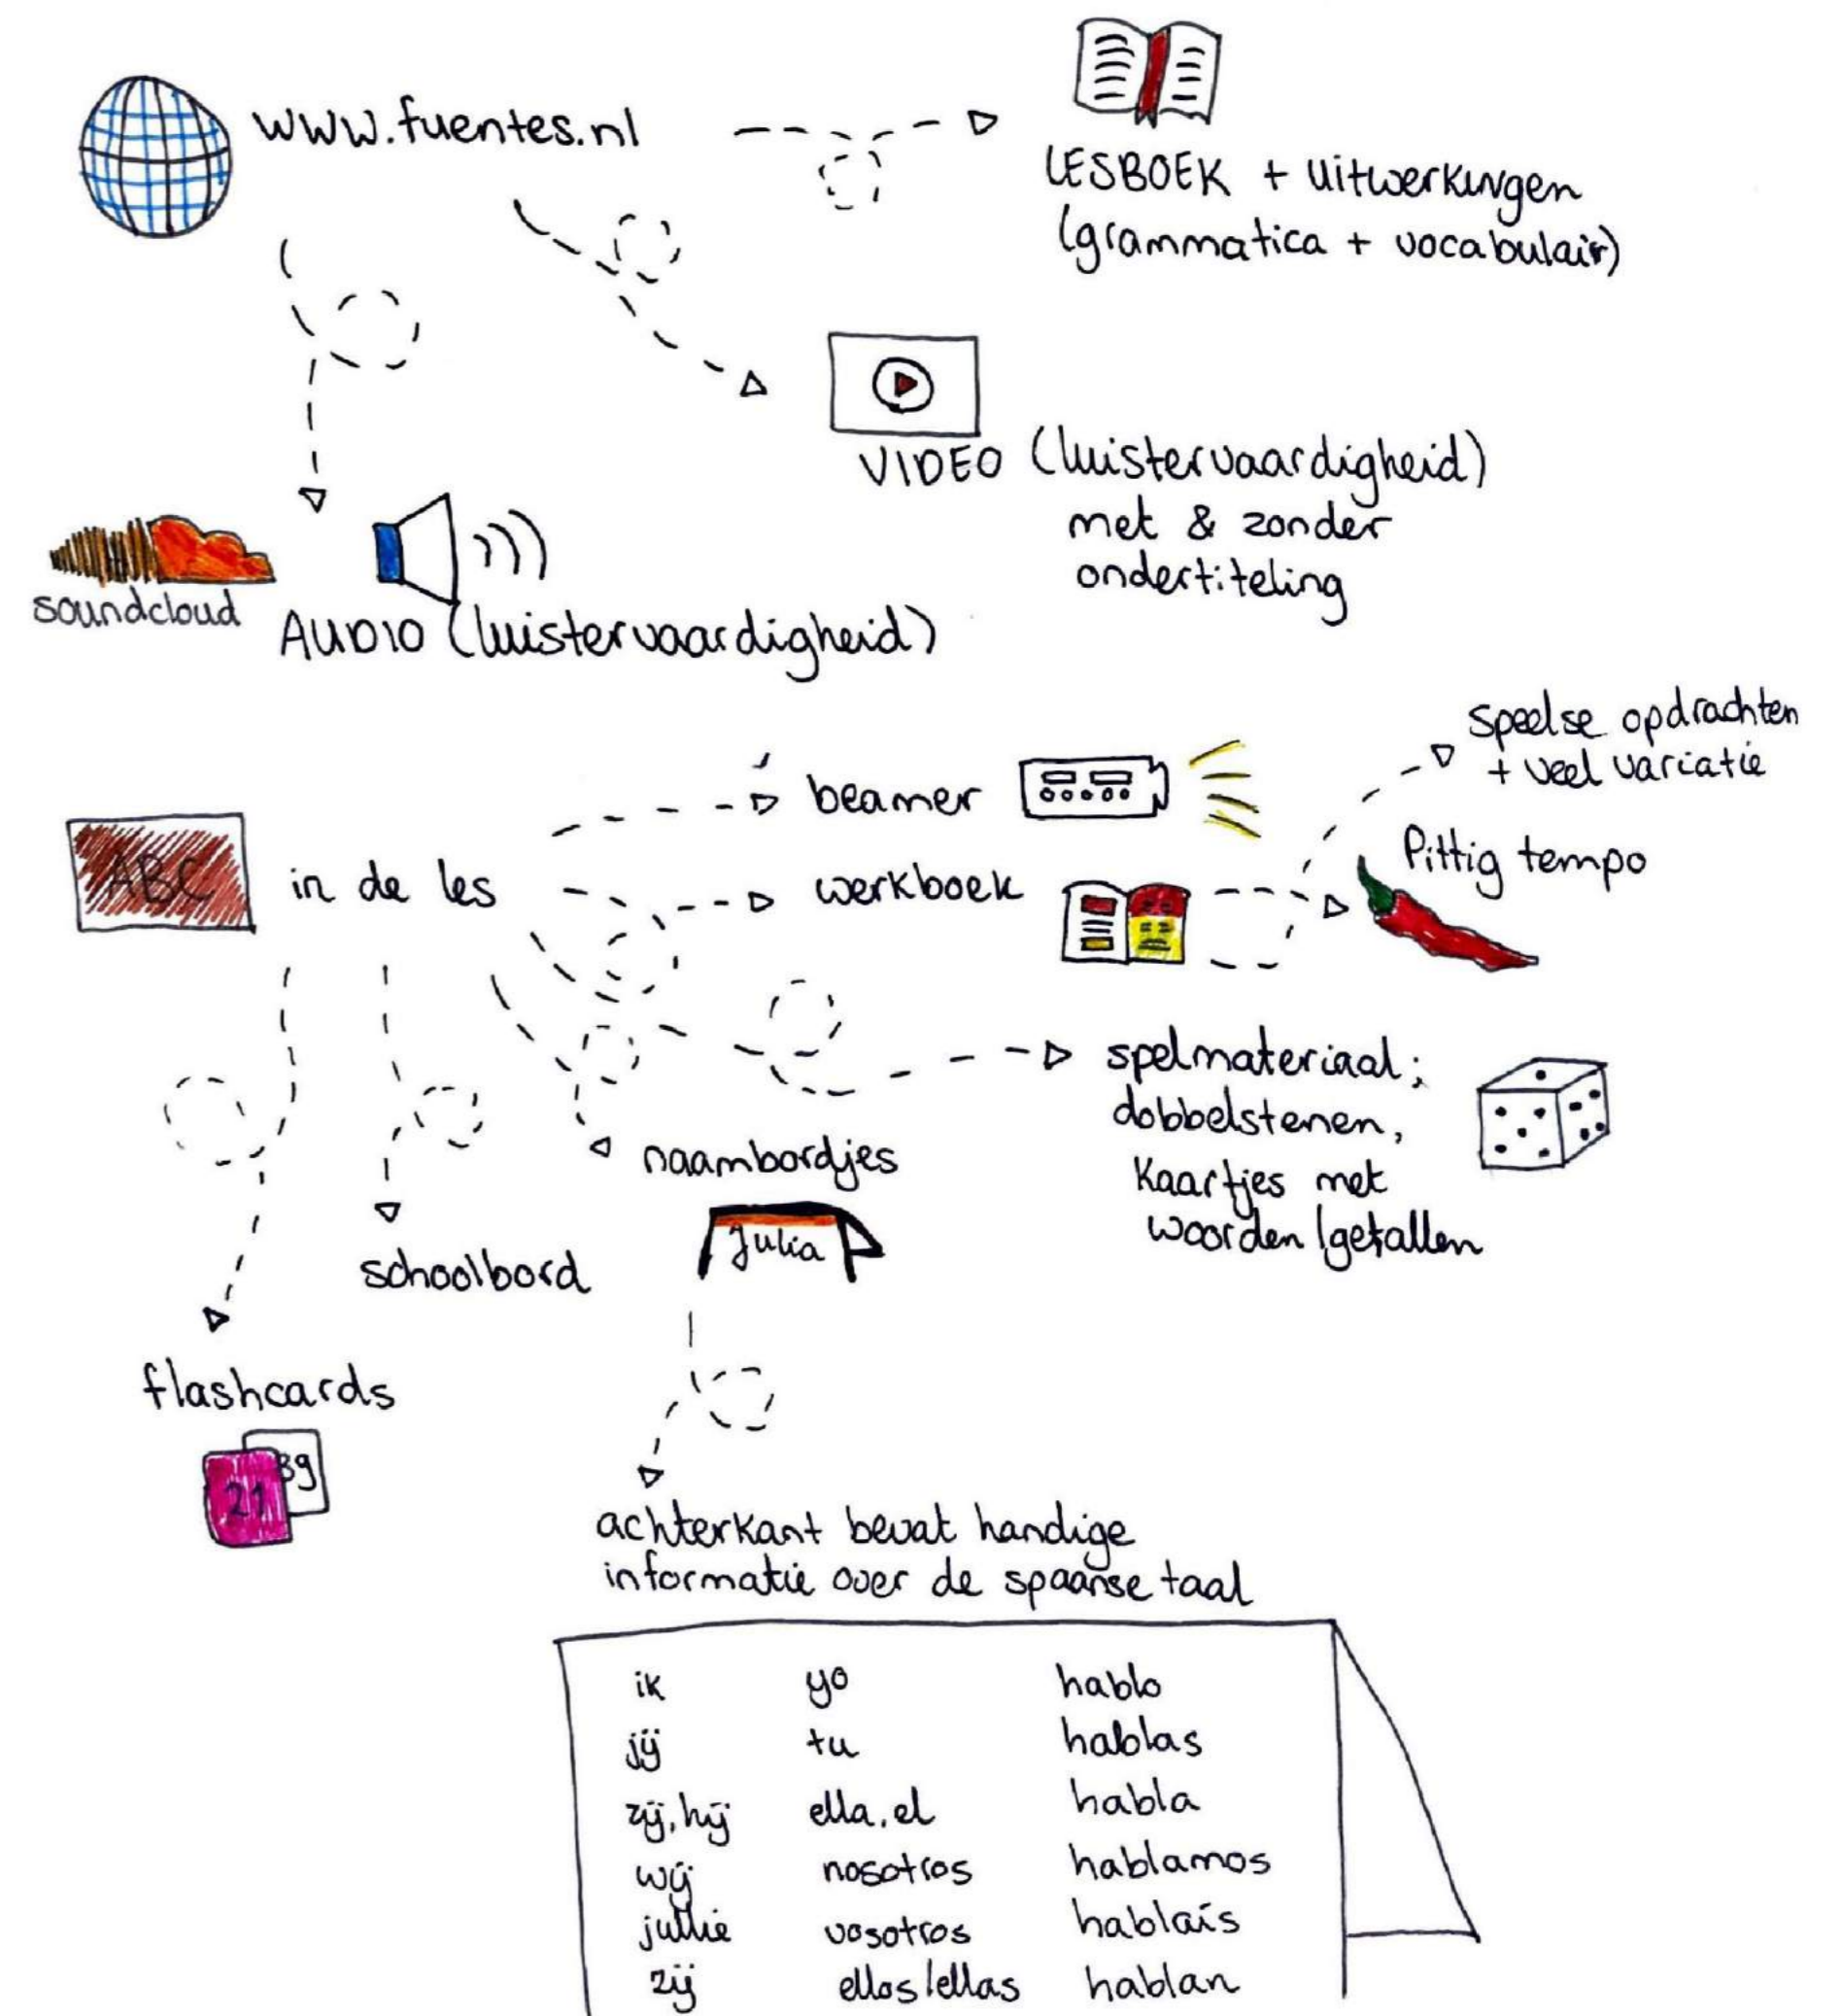 www.fuentes.nl
LESBOEK + uitwerkingen
(grammatica + vocabulair)
VIDEO (luistervaardigheid)
met & zonder
ondertiteling
soundcloud
AUDIO (luistervaardigheid)
speelse opdrachten
+ veel variatie
beamer
Pittig tempo
ABC
in de les
werkboek
spelmateriaal;
dobbelstenen,
kaartjes met
woorden/getallen
naambordjes
Julia
schoolbord
flashcards
21
39
achterkant bevat handige
informatie over de spaanse taal
ik yo hablo
jij tu hablas
zij, hij ella, el habla
wij nosotros hablamos
jullie vosotros hablaís
zij ellos/ellas hablan